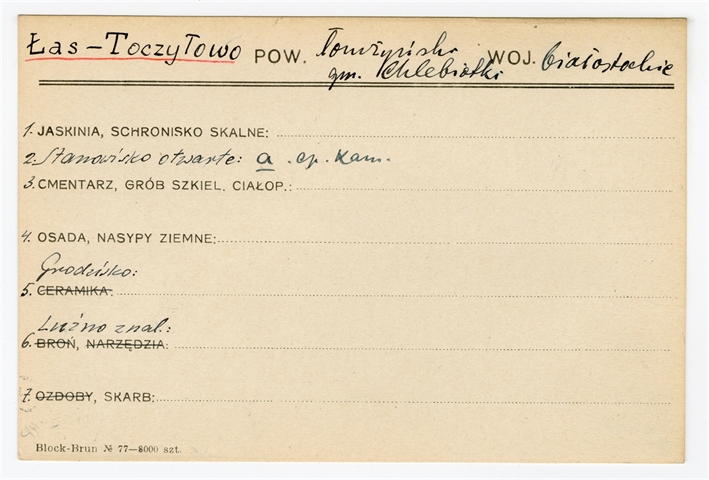 Łas-Toczyłowo POW. Łomżyński WOJ. białostockie
gm. Chlebiotki
1. JASKINIA, SCHRONISKO SKALNE:
2. Stanowisko otwarte: a . ep. kam.
3. CMENTARZ, GRÓB SZKIEL. CIAŁOP.:
4. OSADA, NASYPY ZIEMNE:
Grodzisko:
5. CERAMIKA:
Luźno znal.:
6. BROŃ, NARZĘDZIA:
7. OZDOBY, SKARB:
Block-Brun № 77—8000 szt.